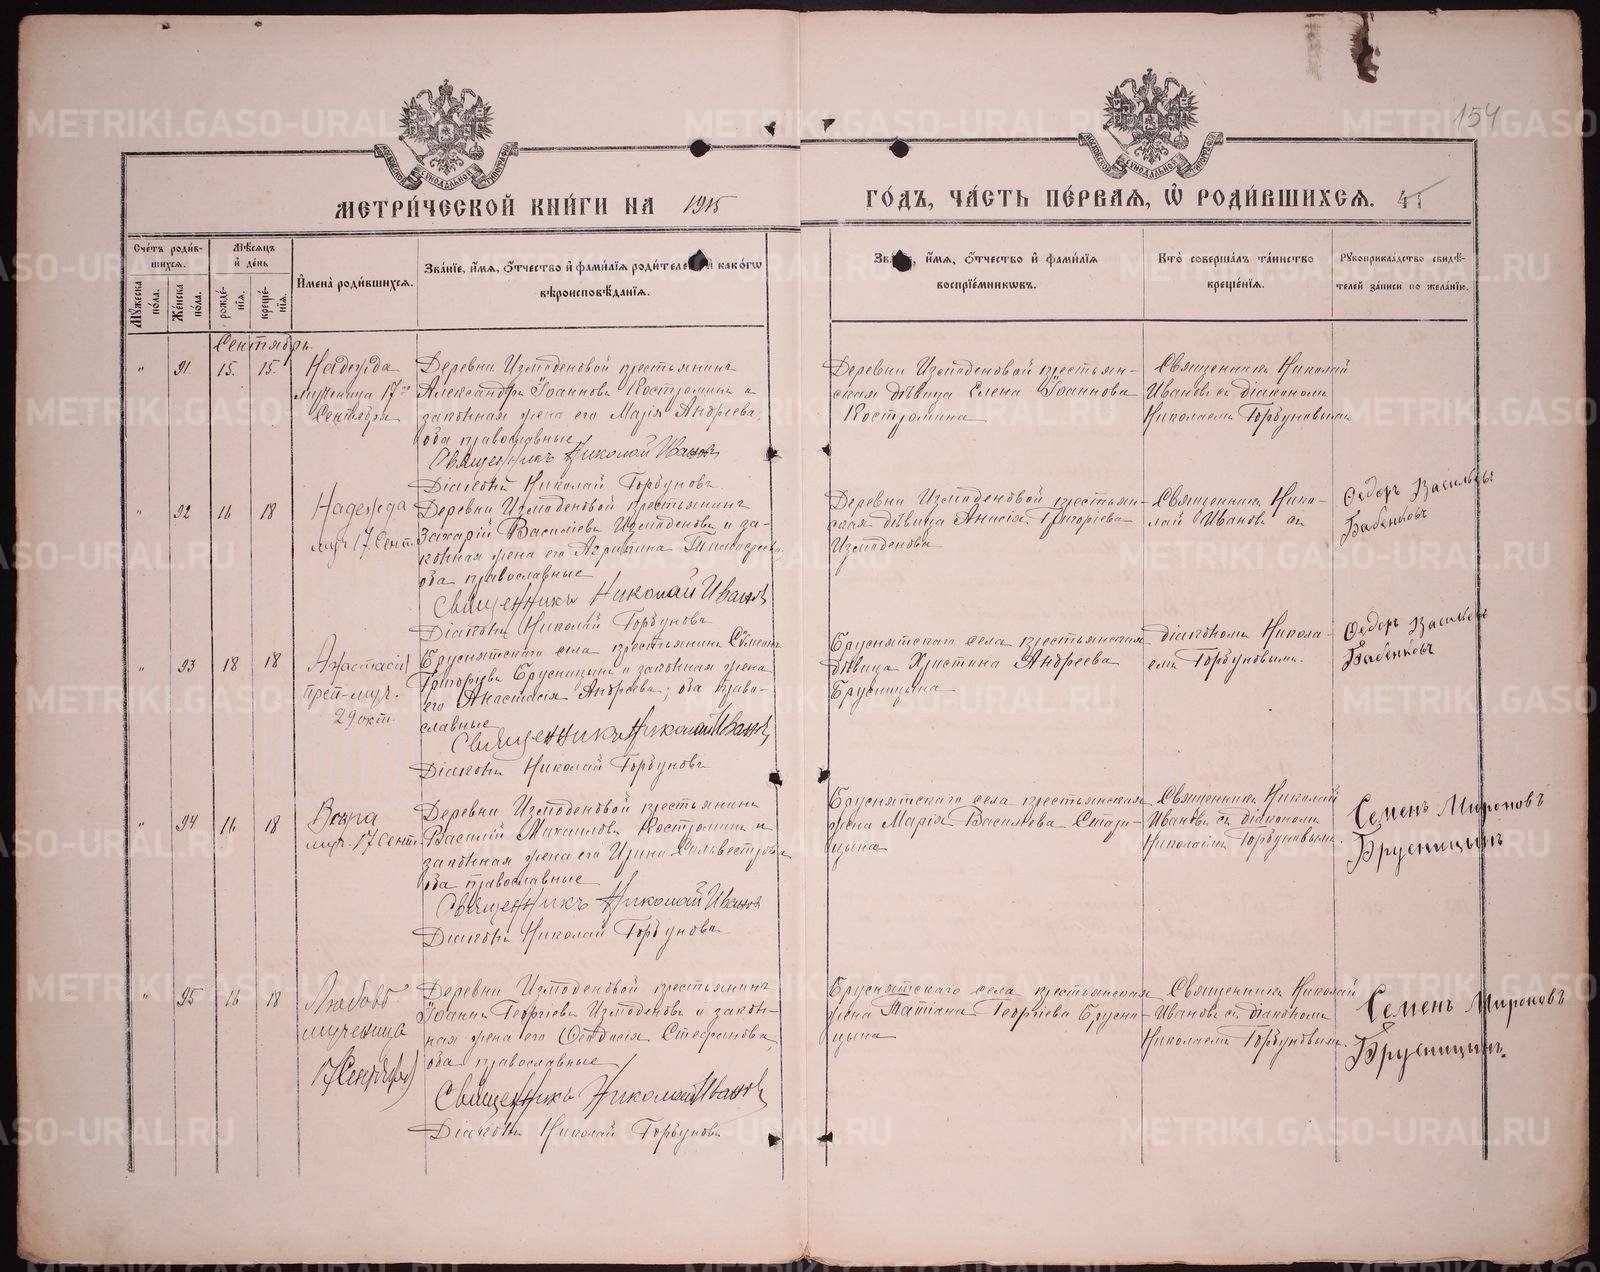 154
МЕТРИ́ЧЕСКОЙ КНИ́ГИ НА 1915 ГО́ДЪ, ЧА́СТЬ ПЕ́РВАЯ, Ѡ҆ РОДИ́ВШИХСЯ.
Сче́тъ роди́в-
шихся.
Мꙋ́жеска по́ла.
Же́нска по́ла.
Мѣ́сяцъ
и҆ де́нь
рожде́-
нїя.
креще́-
нїя.
И҆мена̀ роди́вшихся.
Зва́нїе, и҆́мя, ѻ҆́тчество и҆ фами́лїя роди́телей, и҆ како́гѡ
вѣроисповѣ́данїя.
Зва́нїе, и҆́мя, ѻ҆́тчество и҆ фами́лїя
воспрїе́мникѡвъ.
Кто̀ соверша́лъ та́инство
креще́нїя.
Рꙋкоприкла́дство свидѣ́-
телей за́писи по жела́нїю.
Сентябрь.
" 91 15. 15.
Надежда
мученица 17го
Сентября
Деревни Измоденовой крестьянинъ
Александръ Іоанновъ Костромин и
законная жена его Марія Андреева,
оба православные
Священникъ Николай Ивановъ
Діаконъ Николай Горбуновъ
Деревни Измоденовой крестьян-
ская дѣвица Елена Іоаннова
Костромина
Священникъ Николай
Ивановъ съ діакономъ
Николаемъ Горбуновымъ
" 92 16 18
Надежда
муч. 17 Сент.
Деревни Измоденовой крестьянинъ
Захарій Василіевъ Измоденовъ и за-
конная жена его Агрипина
оба православные
Священникъ Николай Ивановъ
Діаконъ Николай Горбуновъ
Деревни Измоденовой крестьян-
ская дѣвица Анисія Григоріева
Измоденова
Священникъ Нико-
лай Ивановъ съ
Ѳедоръ Васильевъ
Бабенковъ
" 93 18 18
Анастасія
преп-муч.
29 окт.
Бруснятскаго села крестьянинъ Симеонъ
Григоріевъ Брусницынъ и законная жена
его Анастасія Андреева; оба право-
славные
Священникъ Николай Ивановъ
Діаконъ Николай Горбуновъ
Бруснятскаго села крестьянская
дѣвица Христина Андреева
Брусницына
діакономъ Никола-
емъ Горбуновымъ.
Ѳедоръ Васильевъ
Бабенковъ
" 94 16 18
Вѣра
муч. 17 Сент.
Деревни Измоденовой крестьянинъ
Василій Михаиловъ Костромин и
законная жена его Ирина Сильвестрова
оба православные
Священникъ Николай Ивановъ
Діаконъ Николай Горбуновъ
Бруснятскаго села крестьянская
жена Марія Васильева Стари-
цына
Священникъ Николай
Ивановъ съ діакономъ
Николаемъ Горбуновымъ
Семенъ Мироновъ
Брусницынъ
" 95 16 18
Любовь
мученица
17 Сентября
Деревни Измоденовой крестьянинъ
Іоаннъ Георгіевъ Измоденовъ и закон-
ная жена его Ѳеодосія Стефанова,
оба православные
Священникъ Николай Ивановъ
Діаконъ Николай Горбуновъ
Бруснятскаго села крестьянская
жена Татіана Георгіева Брусни-
цына
Священникъ Николай
Ивановъ съ діакономъ
Николаемъ Горбуновымъ.
Семенъ Мироновъ
Брусницынъ.
METRIKI.GASO-URAL.RU